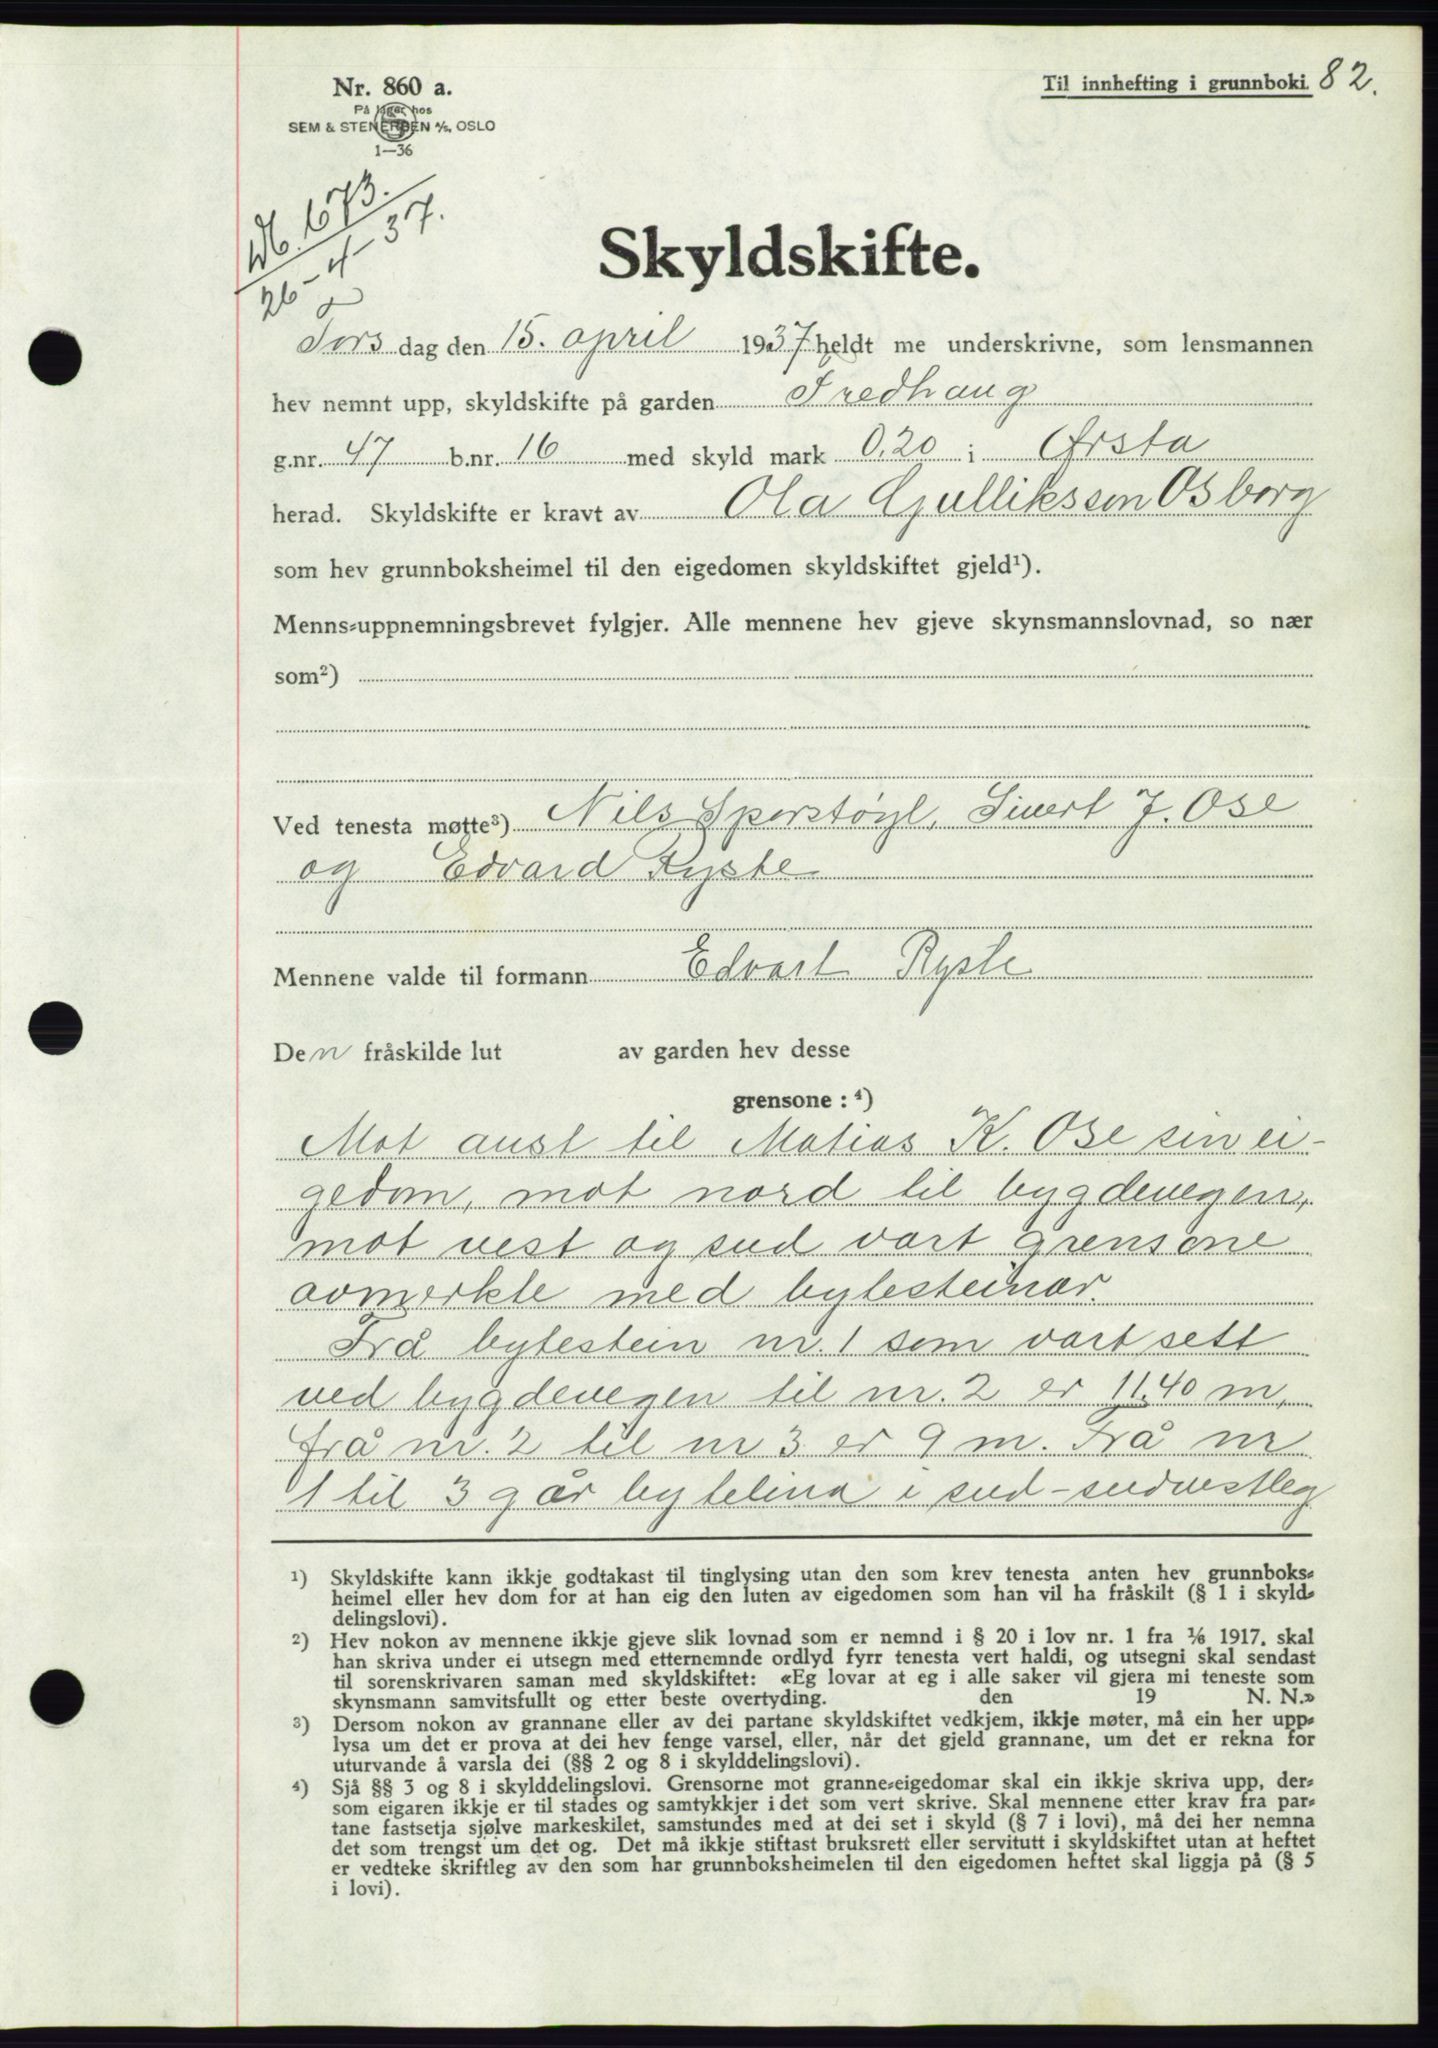 Nr. 860 a.
På lager hos
SEM & STENERSEN A/S, OSLO
1—36
Til innhefting i grunnboki. 82.
Db. 673.
26-4-37.
Skyldskifte.
Torsdag den 15. april 1937 heldt me underskrivne, som lensmannen
hev nemnt upp, skyldskifte på garden Fredhaug
g.nr. 47 b.nr. 16 med skyld mark 0,20 i Ørsta
herad. Skyldskifte er kravt av Ola Gulliksson Osborg
som hev grunnboksheimel til den eigedomen skyldskiftet gjeld¹).
Menns-uppnemningsbrevet fylgjer. Alle mennene hev gjeve skynsmannslovnad, so nær
som²)
Ved tenesta møtte³) Nils Sporstøyl, Sivert J. Ose
og Edvard Ryste
Mennene valde til formann Edvart Ryste
Den fråskilde lut av garden hev desse
grensone : ⁴)
Mot aust til Matias K. Ose sin ei-
gedom, mot nord til bygdevegen,
mot vest og sud vart grensone
avmerkte med bytesteinar.
Frå bytestein nr. 1 som vart sett
ved bygdevegen til nr. 2 er 11,40 m,
frå nr. 2 til nr 3 er 9 m. Frå nr
1 til 3 går bytelina i sud-sudvestleg
¹) Skyldskifte kann ikkje godtakast til tinglysing utan den som krev tenesta anten hev grunnboks-
heimel eller hev dom for at han eig den luten av eigedomen som han vil ha fråskilt (§ 1 i skyld-
delingslovi).
²) Hev nokon av mennene ikkje gjeve slik lovnad som er nemnd i § 20 i lov nr. 1 fra 1/6 1917, skal
han skriva under ei utsegn med etternemnde ordlyd fyrr tenesta vert haldi, og utsegni skal sendast
til sorenskrivaren saman med skyldskiftet: «Eg lovar at eg i alle saker vil gjera mi teneste som
skynsmann samvitsfullt og etter beste overtyding. den 19 N. N.»
³) Dersom nokon av grannane eller av dei partane skyldskiftet vedkjem, ikkje møter, må ein her upp-
lysa um det er prova at dei hev fenge varsel, eller, når det gjeld grannane, um det er rekna for
uturvande å varsla dei (§§ 2 og 8 i skylddelingslovi).
⁴) Sjå §§ 3 og 8 i skylddelingslovi. Grensorne mot granne-eigedomar skal ein ikkje skriva upp, der-
som eigaren ikkje er til stades og samtykkjer i det som vert skrive. Skal mennene etter krav fra par-
tane fastsetja sjølve markeskilet, samstundes med at dei set i skyld (§ 7 i lovi), må dei her nemna
det som trengst um det og. Det må ikkje stiftast bruksrett eller servitutt i skyldskiftet utan at heftet
er vedteke skriftleg av den som har grunnboksheimelen til den eigedomen heftet skal liggja på (§ 5
i lovi).